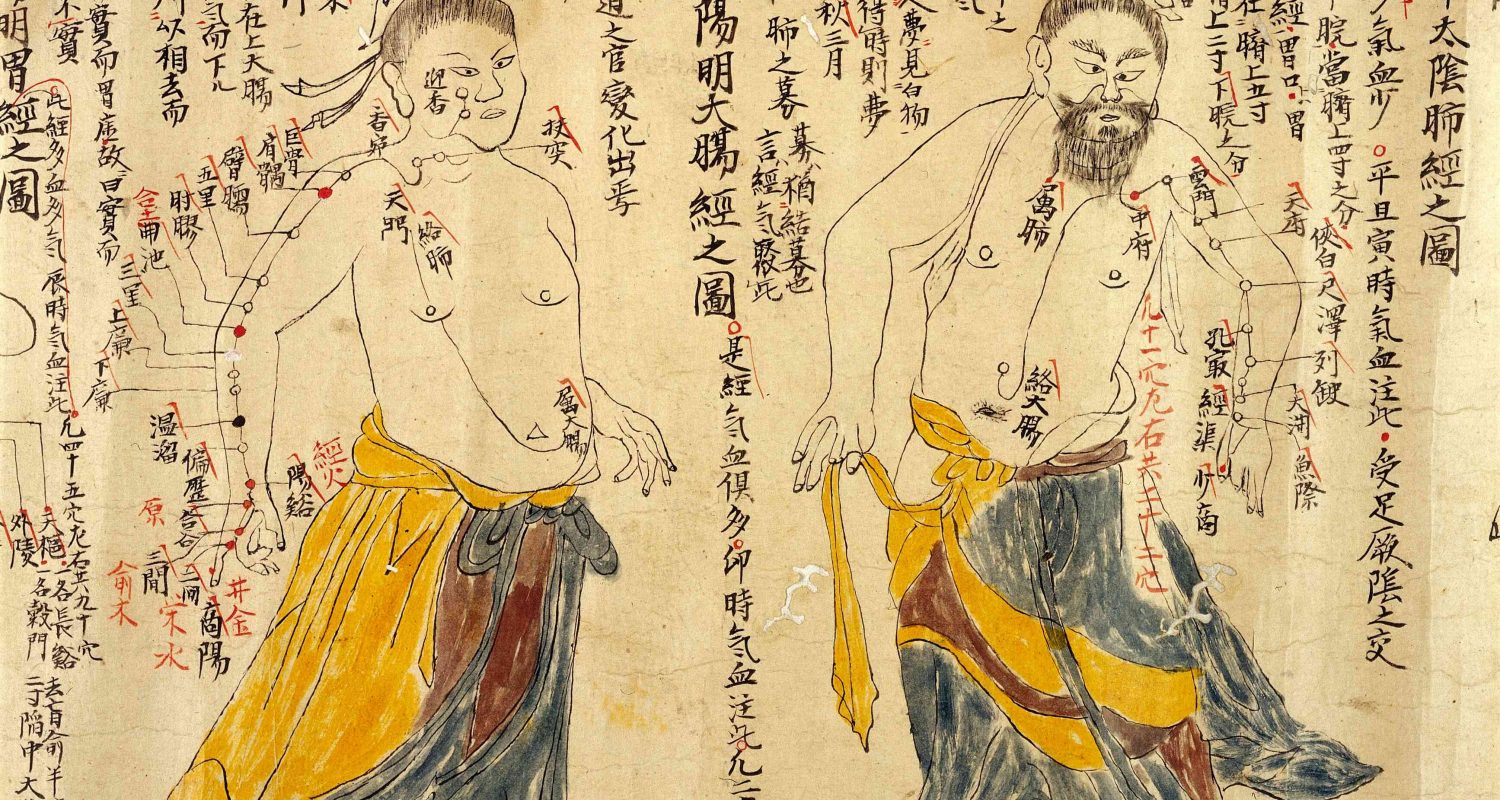 太陰肺經之圖
氣血少。平旦寅時氣血注此。受足厥陰之交
脘當臍上四寸之分
俠白
尺澤
列缺
在臍上五寸
經胃口上胃
臍上二寸下脘之分
天府
雲門
中府
屬肺
孔最
經渠
太渊
魚際
少商
絡大腸
凡十一穴左右共二十二穴
夢見白物
待時則夢
秋三月
肺之募
募猶結募也
言經氣聚此
陽明大腸經之圖
是經氣血俱多。卯時氣血注此。凡二
道之官變化出焉
扶突
迎香
天
絡肺
屬大腸
巨骨
肩髃
臂臑
五里
肘髎
曲池
合土
三里
上廉
下廉
温溜
偏歷
陽谿
經火
合谷
原
三間
俞木
二間
荥水
商陽
井金
在上大腸
氣而下
所以相去而
實而胃虛故曰實而
不實
明胃經之圖
此經多血多氣辰時氣血注此。凡四十五穴左右共九十穴
天樞
一名長谿
一名穀門
去肓俞半
二寸陷中大
外陵